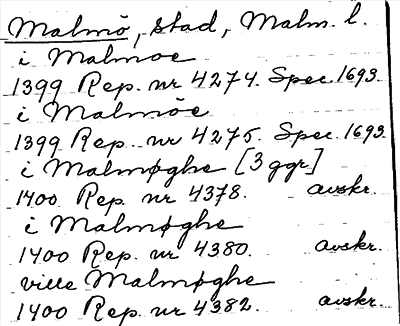 Malmö, stad, Malm. l.
i Malmoe
1399 Rep. nr 4274. Spec. 1693.
i Malmöe
1399 Rep. nr 4275. Spec. 1693
i Malmøghe [3 ggr.]
1400 Rep. nr 4378. avskr.
i Malmøghe
1400 Rep. nr 4380. avskr.
ville Malmøghe
1400 Rep. nr 4382. avskr.